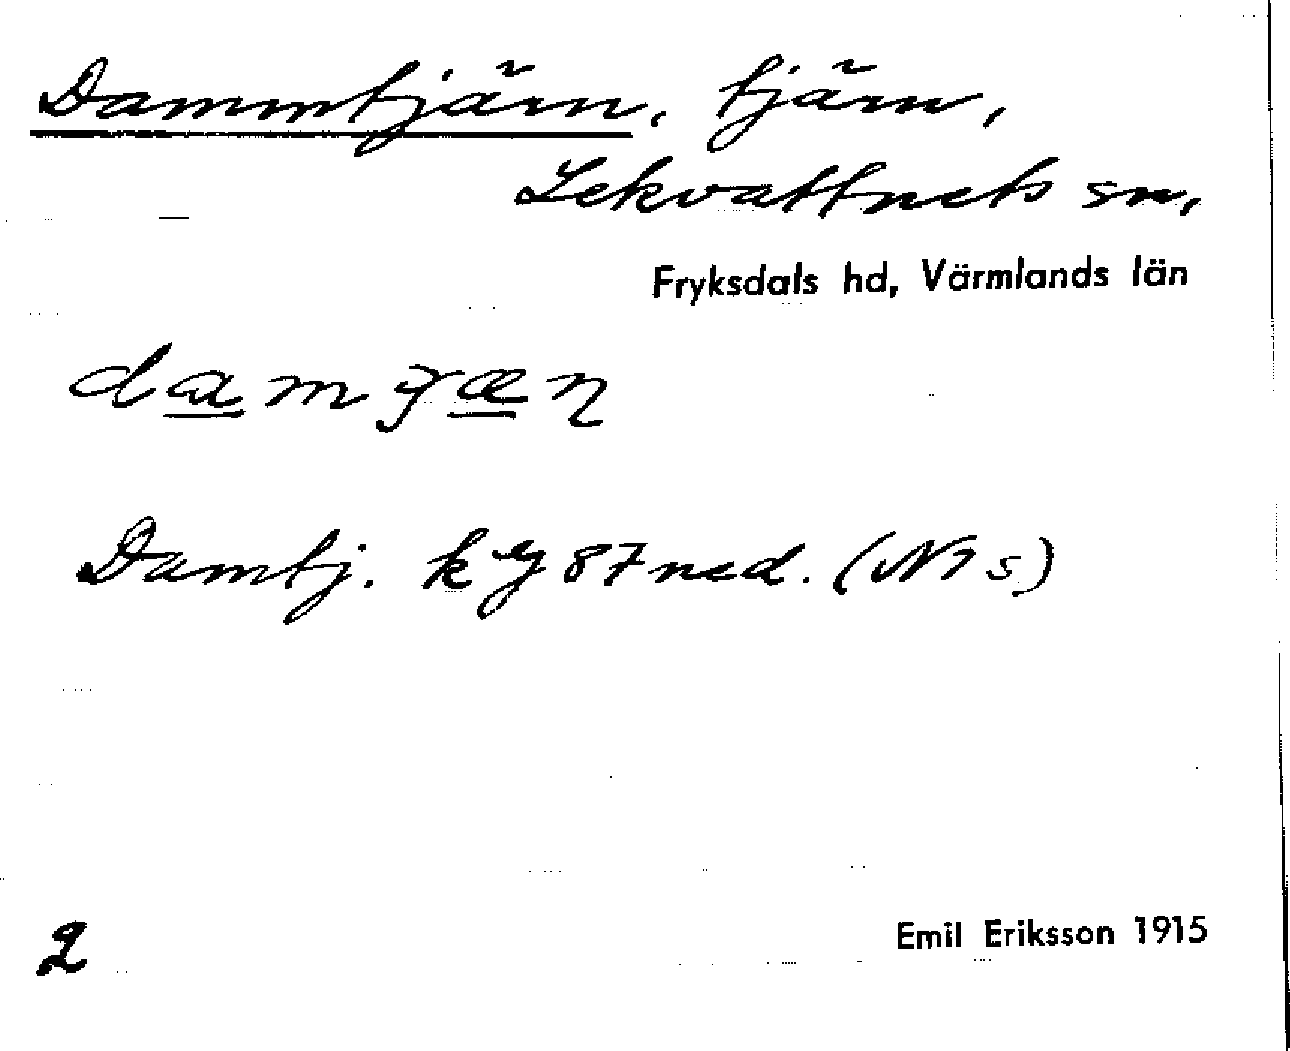 Dammtjärn, tjärn,
Lekvattnets sn,
Fryksdals hd, Värmlands län
Damtj. k 87 ned. (N1s)
2
Emil Eriksson 1915